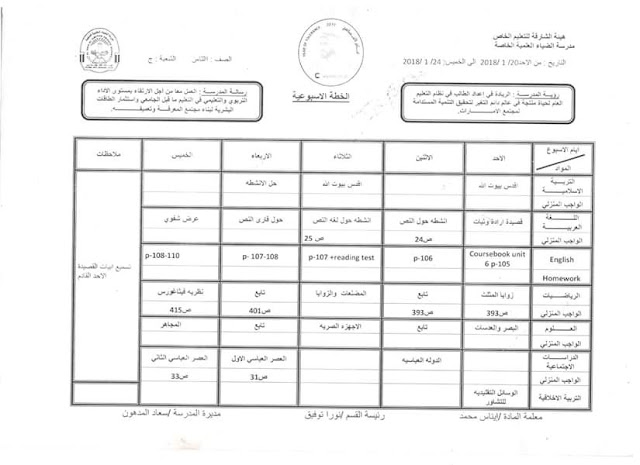 هيئة الشارقة للتعليم الخاص
مدرسة الضياء العلمية الخاصة
التاريخ : من الاحد 1/20/ 2018 الى الخميس: 1/24/ 2018
الصف : الثامن الشعبة : ج
الخطة الاسبوعية
رؤية المدرسة : الريادة في اعداد الطالب في نظام التعليم
العام لحياة منتجة في عالم دائم التغير لتحقيق التنمية المستدامة
لمجتمع الامـــارات.
رسالة المدرسة : العمل معا من أجل الارتقاء بمستوى الأداء
التربوي والتعليمي في التعليم ما قبل الجامعي واستثمار الطاقات
البشرية لبناء مجتمع المعرفة وتعميقه.
ايام الاسبوع
المواد
الاحد الاثنين الثلاثاء الاربعاء الخميس ملاحظات
التربية الاسلامية اقدس بيوت الله اقدس بيوت الله حل الانشطه
الواجب المنزلي
اللغة العربية قصيدة ارادة وثبات انشطه حول النص انشطه حول لغه النص حول قارئ النص عرض شفوي
الواجب المنزلي ص24 ص 25
English Coursebook unit 6 p-105 p-106 p-107 +reading test p- 107-108 p-108-110
Homework
تسميع ابيات القصيدة
الاحد القادم
الرياضيات زوايا المثلث تابع المضلعات والزوايا تابع نظريه فيثاغورس
الواجب المنزلي ص393 ص393 ص401 ص415
العلوم البصر والعدسات تابع الاجهزه البصريه تابع المجاهر
الواجب المنزلي
الدراسات الاجتماعية الدوله العباسيه العصر العباسي الاول العصر العباسي الثاني
الواجب المنزلي ص31 ص33
التربية الاخلاقية الوسائل التقليديه للتشاور
معلمة المادة /ايناس محمد رئيسة القسم /نورا توفيق مديرة المدرسة /سعاد المدهون